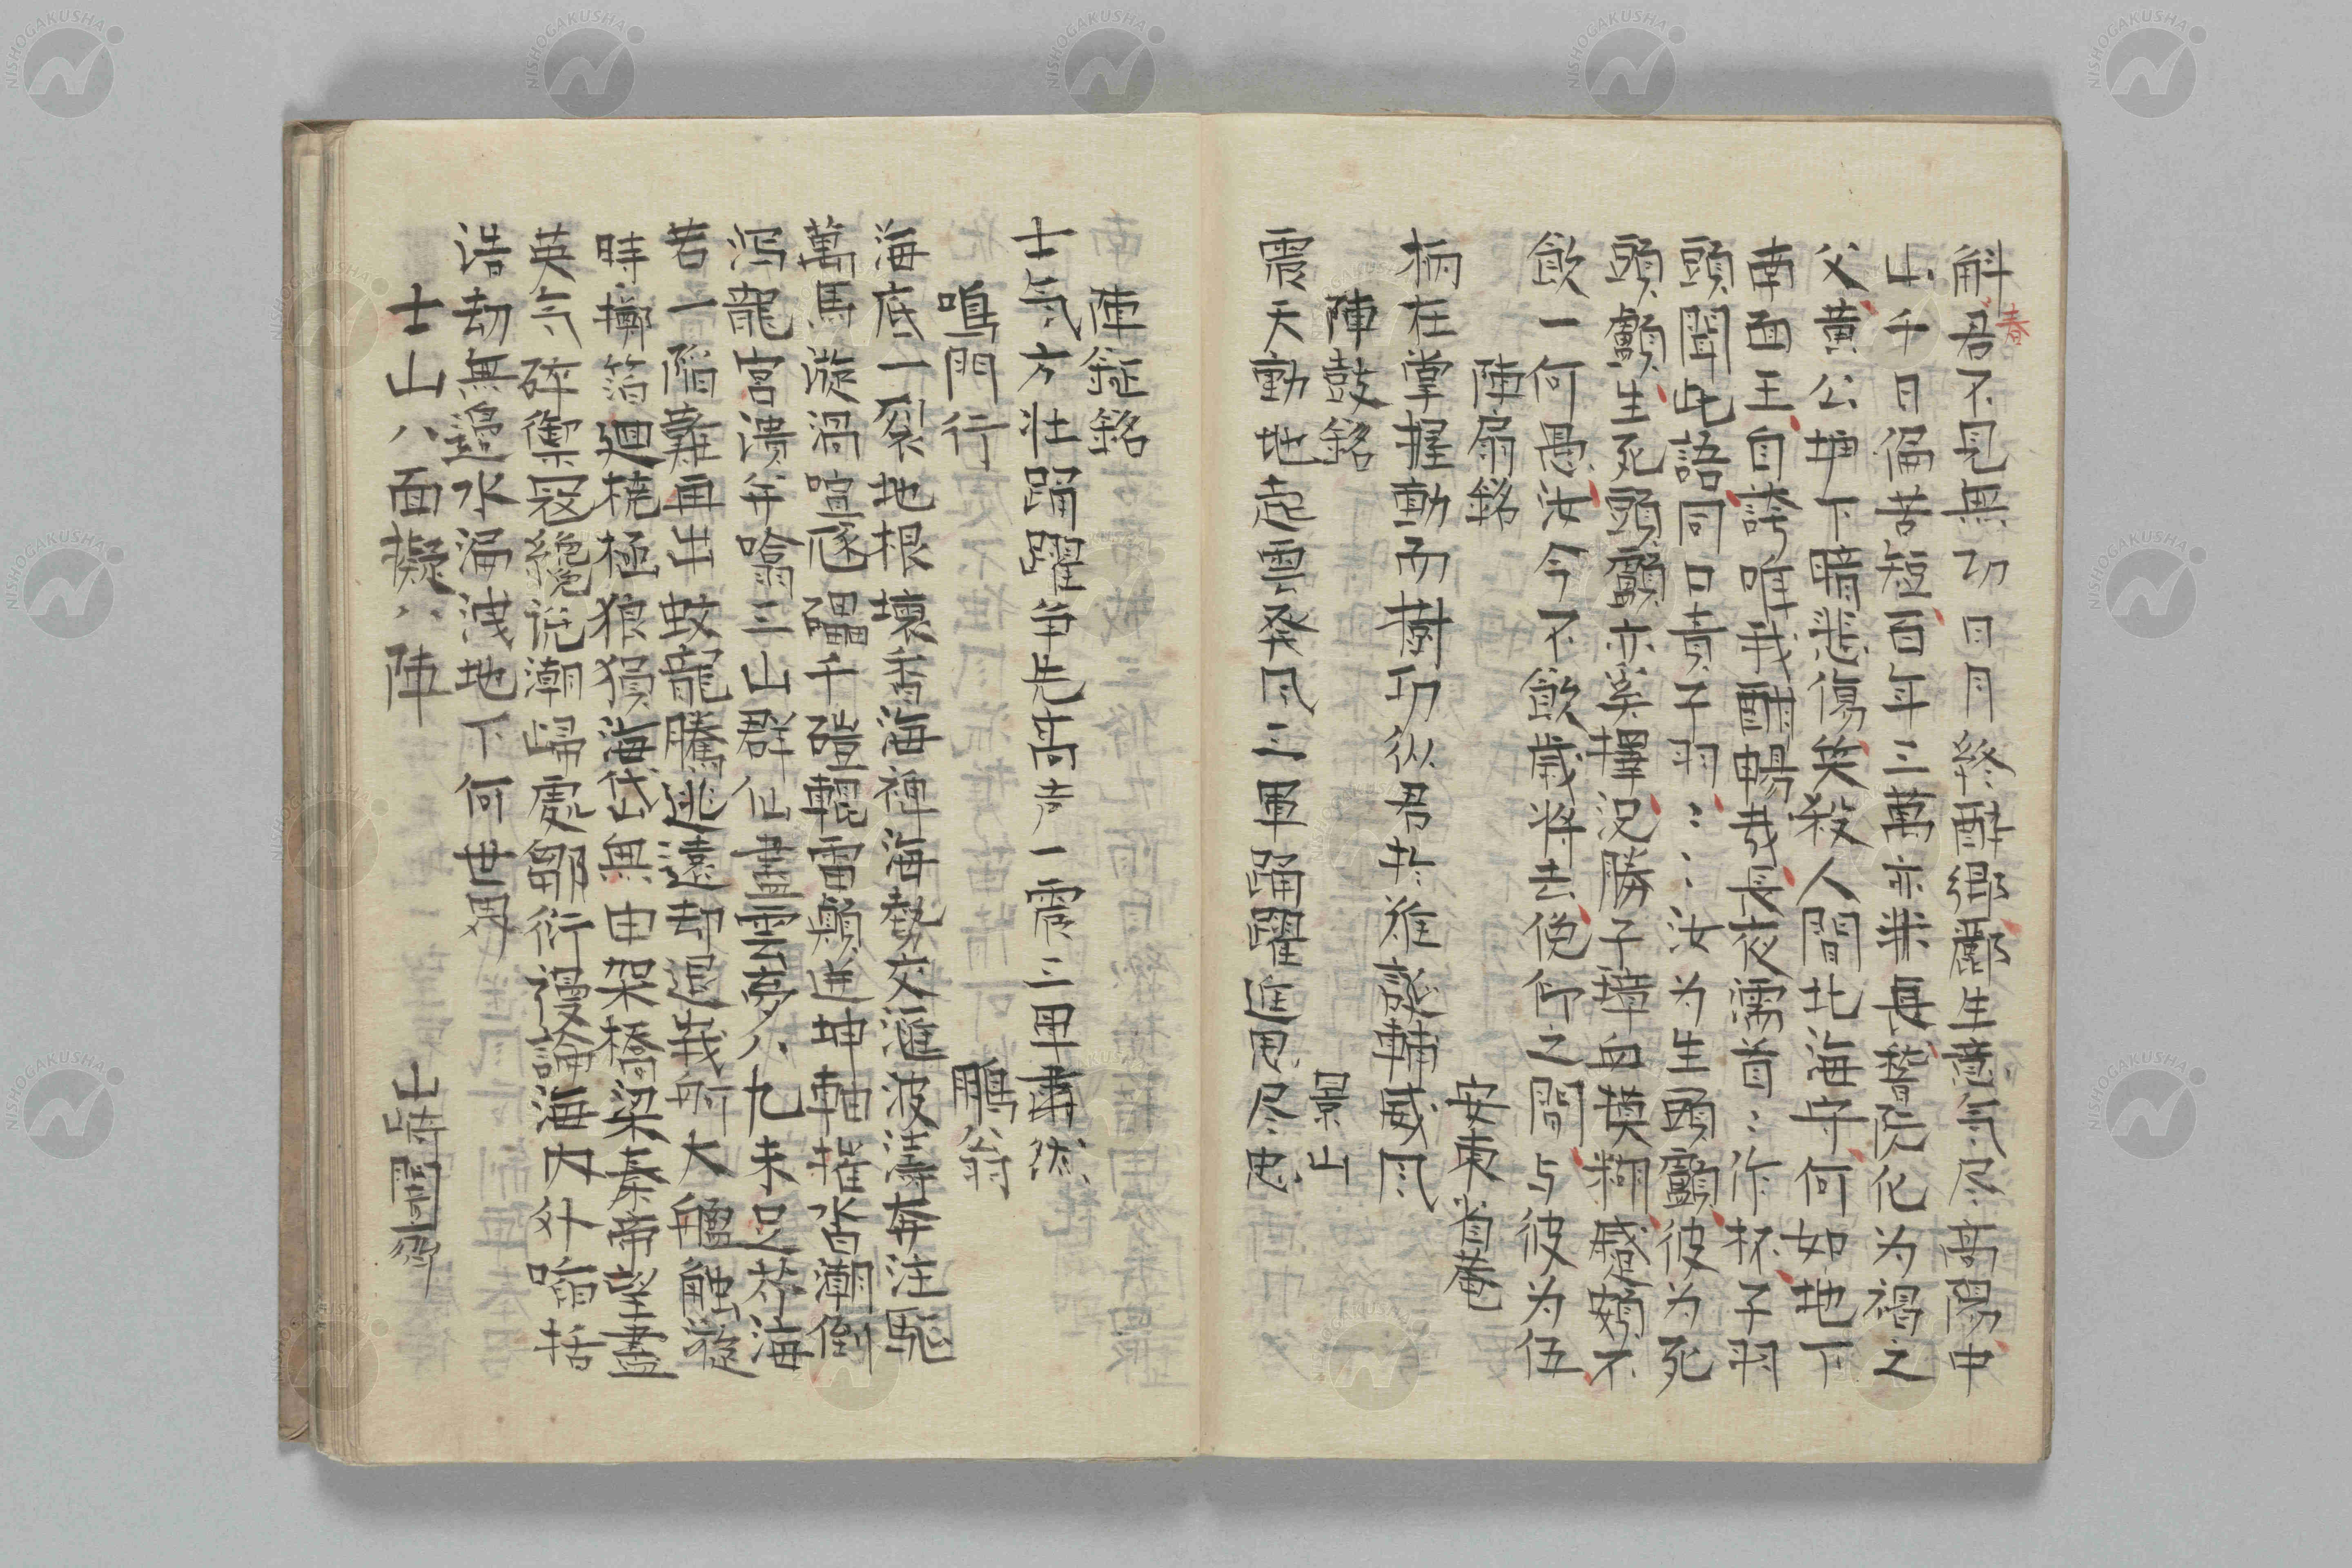 斛君不見無功日月終醉郷酈生意気尽高陽中
春
山千日偏苦短百年三萬亦米長嵆阮化为禍之
父黄公壚下暗悲傷矣殺人間北海守何如地下
南面王自誇唯我酣暢哉長夜濡首〻作杯子羽
頭聞此語同口責子羽〻〻汝为生頭顱彼为死
頭顱生死頭顱亦奚擇況勝子璋血模糊感蹙頞不
飲一何愚汝今不飲歳将去俛仰之間与彼为伍
陣扇銘 安東省菴
柄在掌握動而樹功従君指揮發輔威风
陣鼓銘 景山
震天動地起雲発风三軍踊躍進思尽忠
陣鉦銘
士気方壮踊躍争先高声一震三軍粛然
鳴門行 鵬翁
海底一裂地根壊香海裨海勢交滙波濤奔注駈
萬馬漩渦喧豗礨千磑轆雷顛進坤軸摧沓潮倒
瀉龍宮潰弁喰三山群仙盡雲夢八九未足芥海
若一陥難再出蛟龍騰逃遠却過我舟大艫触漩
時擲箔廻橈極狼狽海岱無由架橋梁秦帝望盡
英気砕禦冦纔説潮歸處鄒衍謾論海内外蹈括
浩劫無邉水漏洩地下何世界
士山八面擬八陣 山崎闇斎